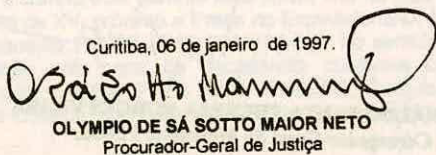 Curitiba, 06 de janeiro de 1997.
OLYMPIO DE SÁ SOTTO MAIOR NETO
Procurador-Geral de Justiça